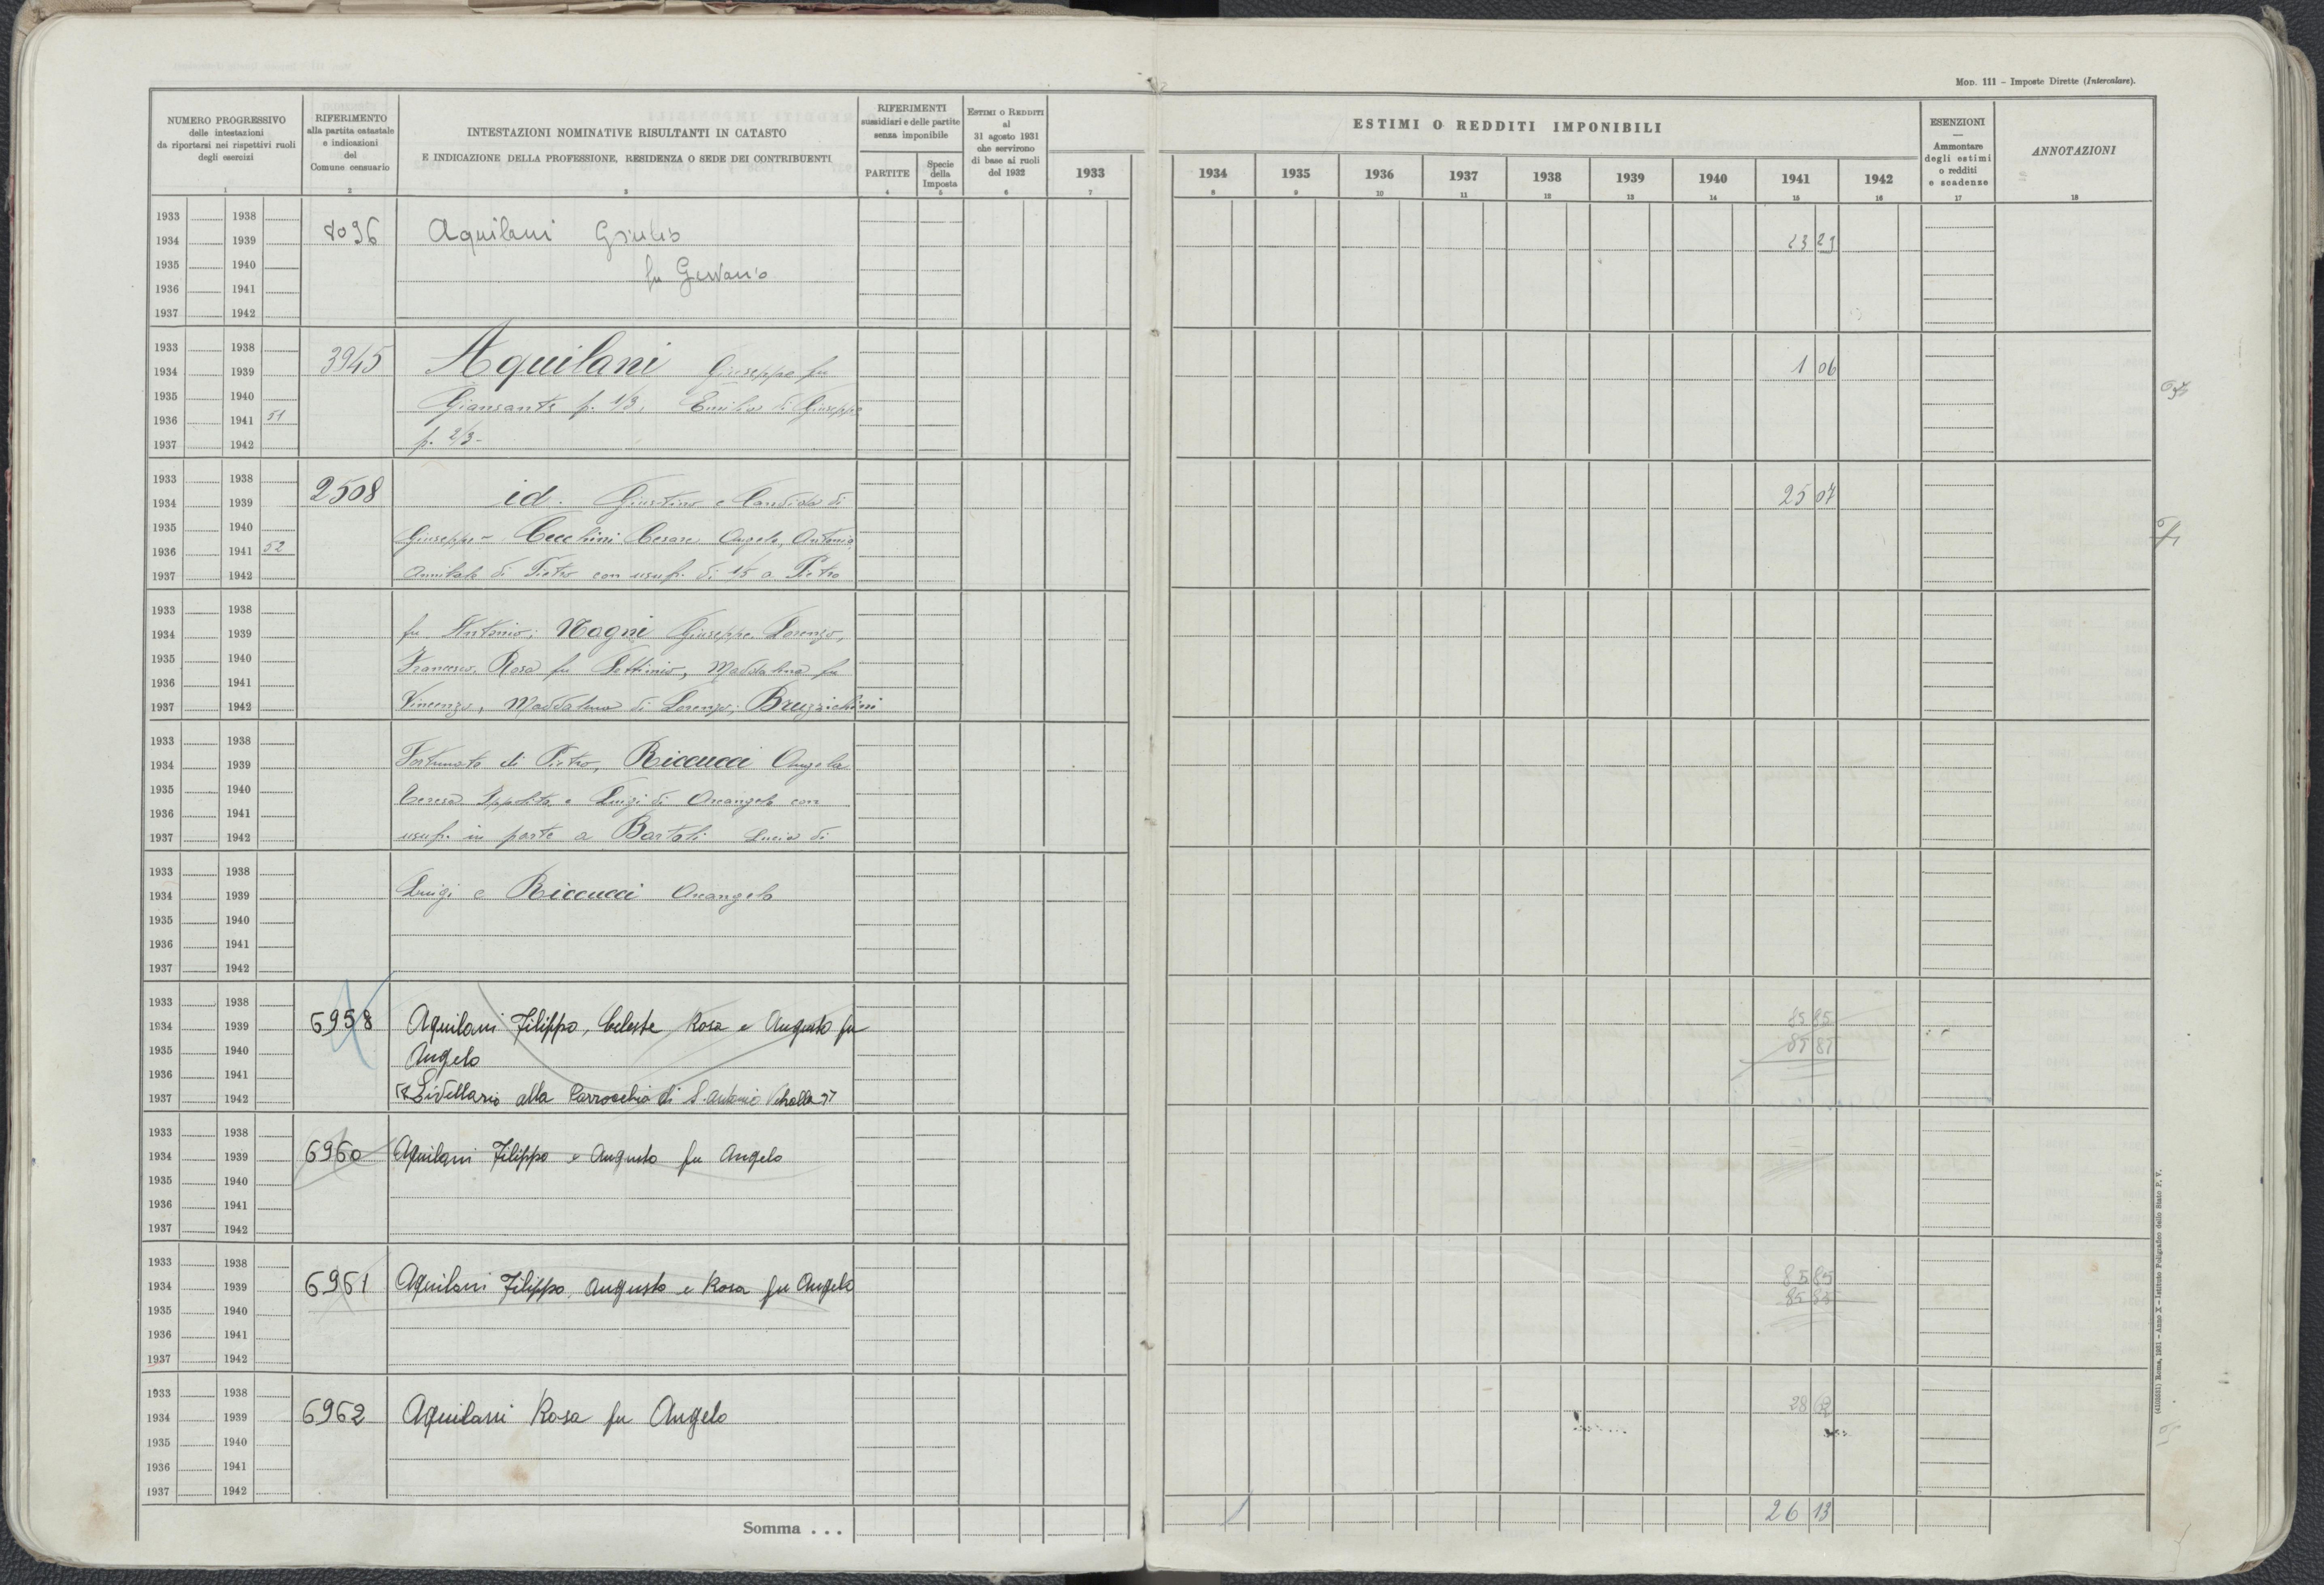 Mod. 111 - Imposte Dirette (Intercalare).
NUMERO PROGRESSIVO
delle intestazioni
da riportarsi nei rispettivi ruoli
degli esercizi
1
RIFERIMENTO
alla partita catastale
e indicazioni
del
Comune censuario
2
INTESTAZIONI NOMINATIVE RISULTANTI IN CATASTO
E INDICAZIONE DELLA PROFESSIONE, RESIDENZA O SEDE DEI CONTRIBUENTI
3
RIFERIMENTI
sussidiari e delle partite
senza imponibile
PARTITE
4
Specie
della
Imposta
5
ESTIMI O REDDITI
al
31 agosto 1931
che servirono
di base ai ruoli
del 1932
6
1933
7
ESTIMI O REDDITI IMPONIBILI
1934 1935 1936 1937 1938 1939 1940 1941 1942
8 9 10 11 12 13 14 15 16
ESENZIONI
—
Ammontare
degli estimi
o redditi
e scadenze
17
ANNOTAZIONI
18
1933 1938
1934 1939 Aquilani Giulio
1935 1940 fu
1936 1941
1937 1942
1933 1938
1934 1939 3945 Aquilani Giuseppe fu 1 06
1935 1940 Giansante p. 1/3, Emilio di Giuseppe
1936 1941 51
1937 1942 p. 2/3-
1933 1938
1934 1939 2508 id. Giustino e Candida di 25 07
1935 1940 Giuseppe - Cecchini Cesare Angelo, Antonio
1936 1941 52
1937 1942 Annibale di Pietro con usuf. di 1/5 a Pietro
1933 1938
1934 1939 fu Antonio; Magni Giuseppe, Lorenzo,
1935 1940 Francesco, Rosa fu Settimio, Maddalena fu
1936 1941
1937 1942 Vincenzo, Maddalena di Lorenzo; Bruzzichini
1933 1938
1934 1939 Fortunato di Pietro, Riccucci Angela
1935 1940 Teresa Ippolita e Luigi di Arcangelo con
1936 1941
1937 1942 usuf. in parte a Bartoli Lucia di
1933 1938
1934 1939 Luigi e Riccucci Arcangelo
1935 1940
1936 1941
1937 1942
1933 1938
1934 1939 6958 Aquilani Filippo, Celeste Rosa e Augusto fu 85 85
1935 1940 Angelo 85 85
1936 1941
1937 1942 Livellario alla Parrocchia di S. Antonio
1933 1938
1934 1939 6960 Aquilani Filippo e Augusto fu Angelo
1935 1940
1936 1941
1937 1942
1933 1938
1934 1939 6961 Aquilani Filippo, Augusto e Rosa fu Angelo 85 85
1935 1940 85 85
1936 1941
1937 1942
1933 1938
1934 1939 6962 Aquilani Rosa fu Angelo 28
1935 1940
1936 1941
1937 1942
Somma . . . 26 13
(4100681) Roma, 1931 - Anno X - Istituto Poligrafico dello Stato P. V.